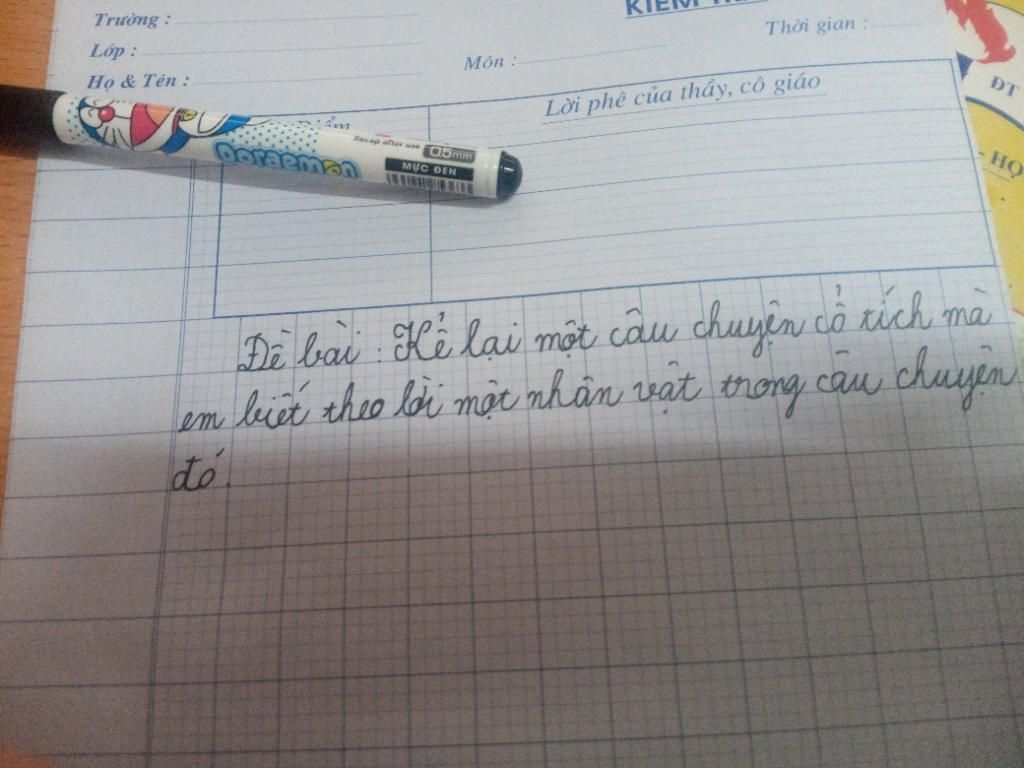 Trường :
Lớp :
Họ & Tên :
Môn :
Thời gian :
Điểm
Lời phê của thầy, cô giáo
Doraemon
Recap after use
0.5mm
MỰC ĐEN
ĐT
- HỌ
Đề bài : Kể lại một câu chuyện cổ tích mà
em biết theo lời một nhân vật trong câu chuyện
đó.